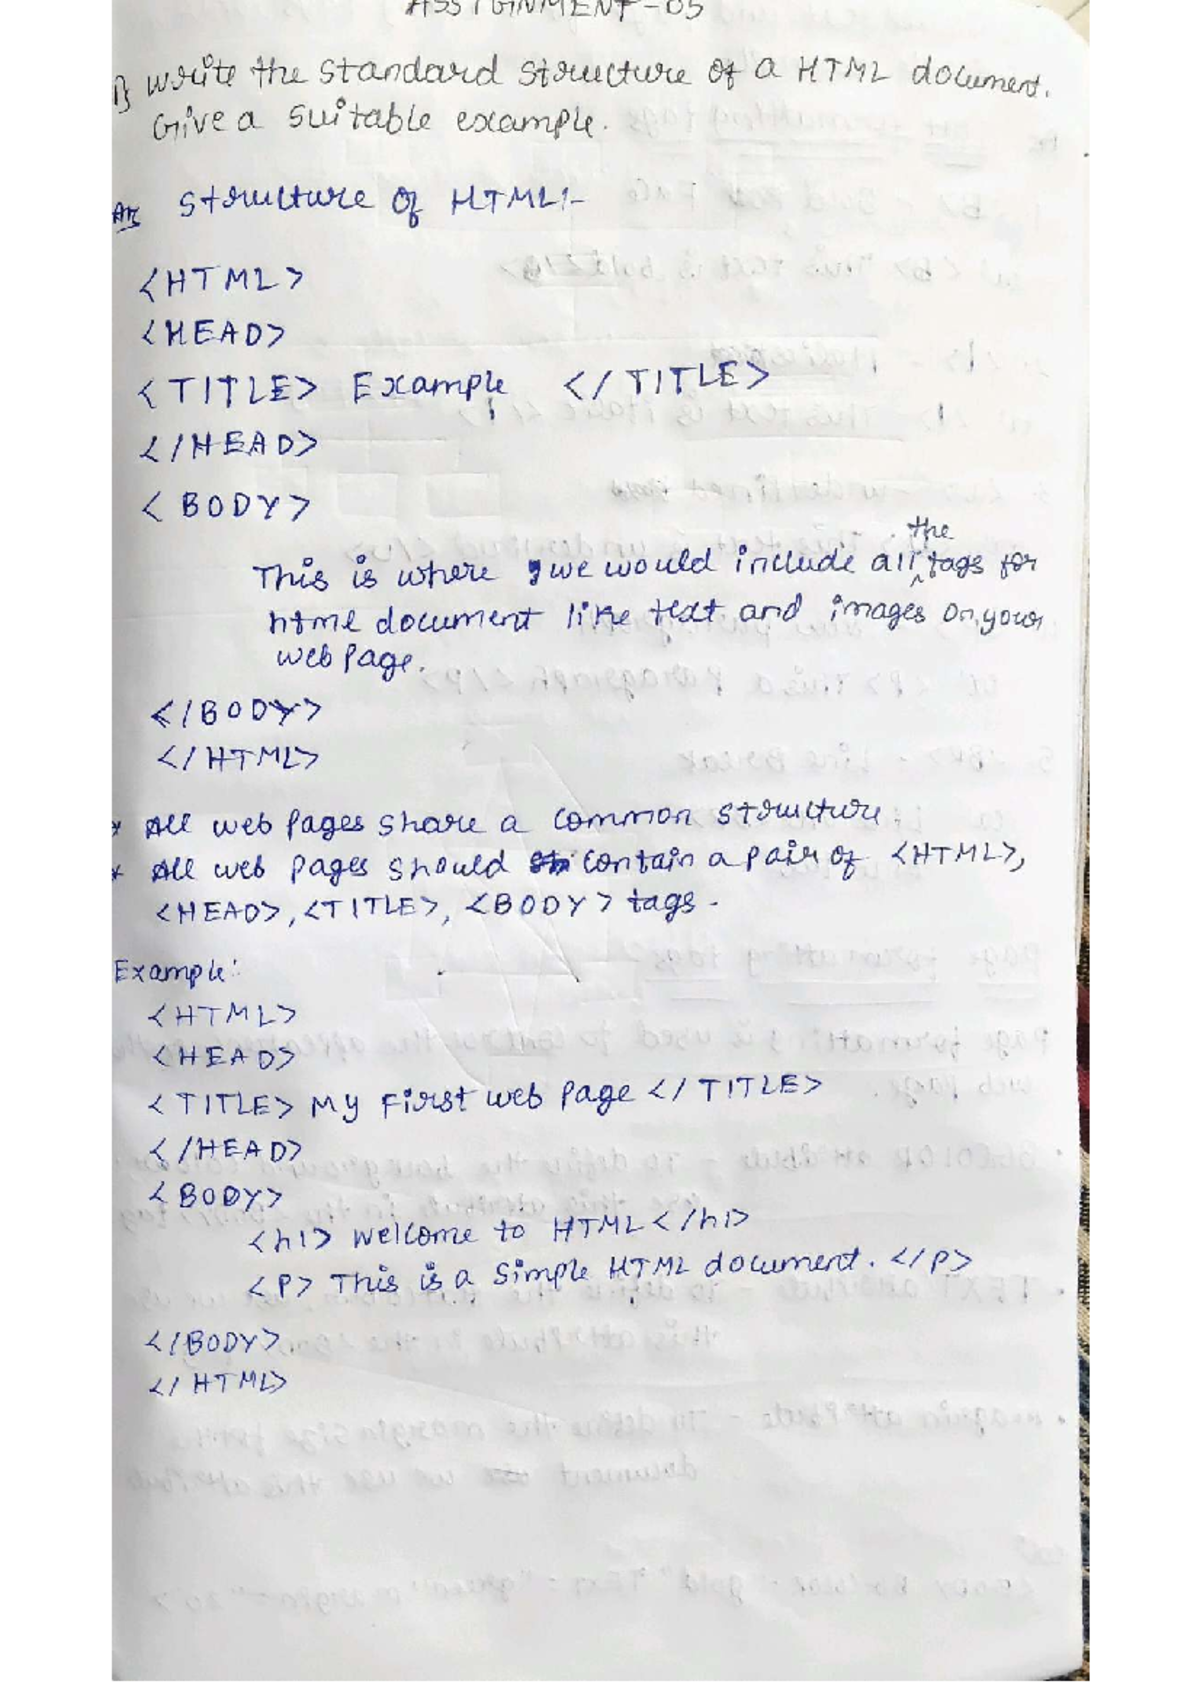 ASSIGNMENT-05
1) Write the standard structure of a HTML document.
Give a suitable example.
Ans Structure of HTML:-
<HTML>
<HEAD>
<TITLE> Example </TITLE>
</HEAD>
<BODY>
the
This is where we would include all tags for
html document like text and images on your
web page.
</BODY>
</HTML>
* All web pages share a common structure
* All web pages should contain a pair of <HTML>,
<HEAD>, <TITLE>, <BODY> tags.
Example:
<HTML>
<HEAD>
<TITLE> My First web page </TITLE>
</HEAD>
<BODY>
<h1> Welcome to HTML </h1>
<P> This is a Simple HTML document. </P>
</BODY>
</HTML>